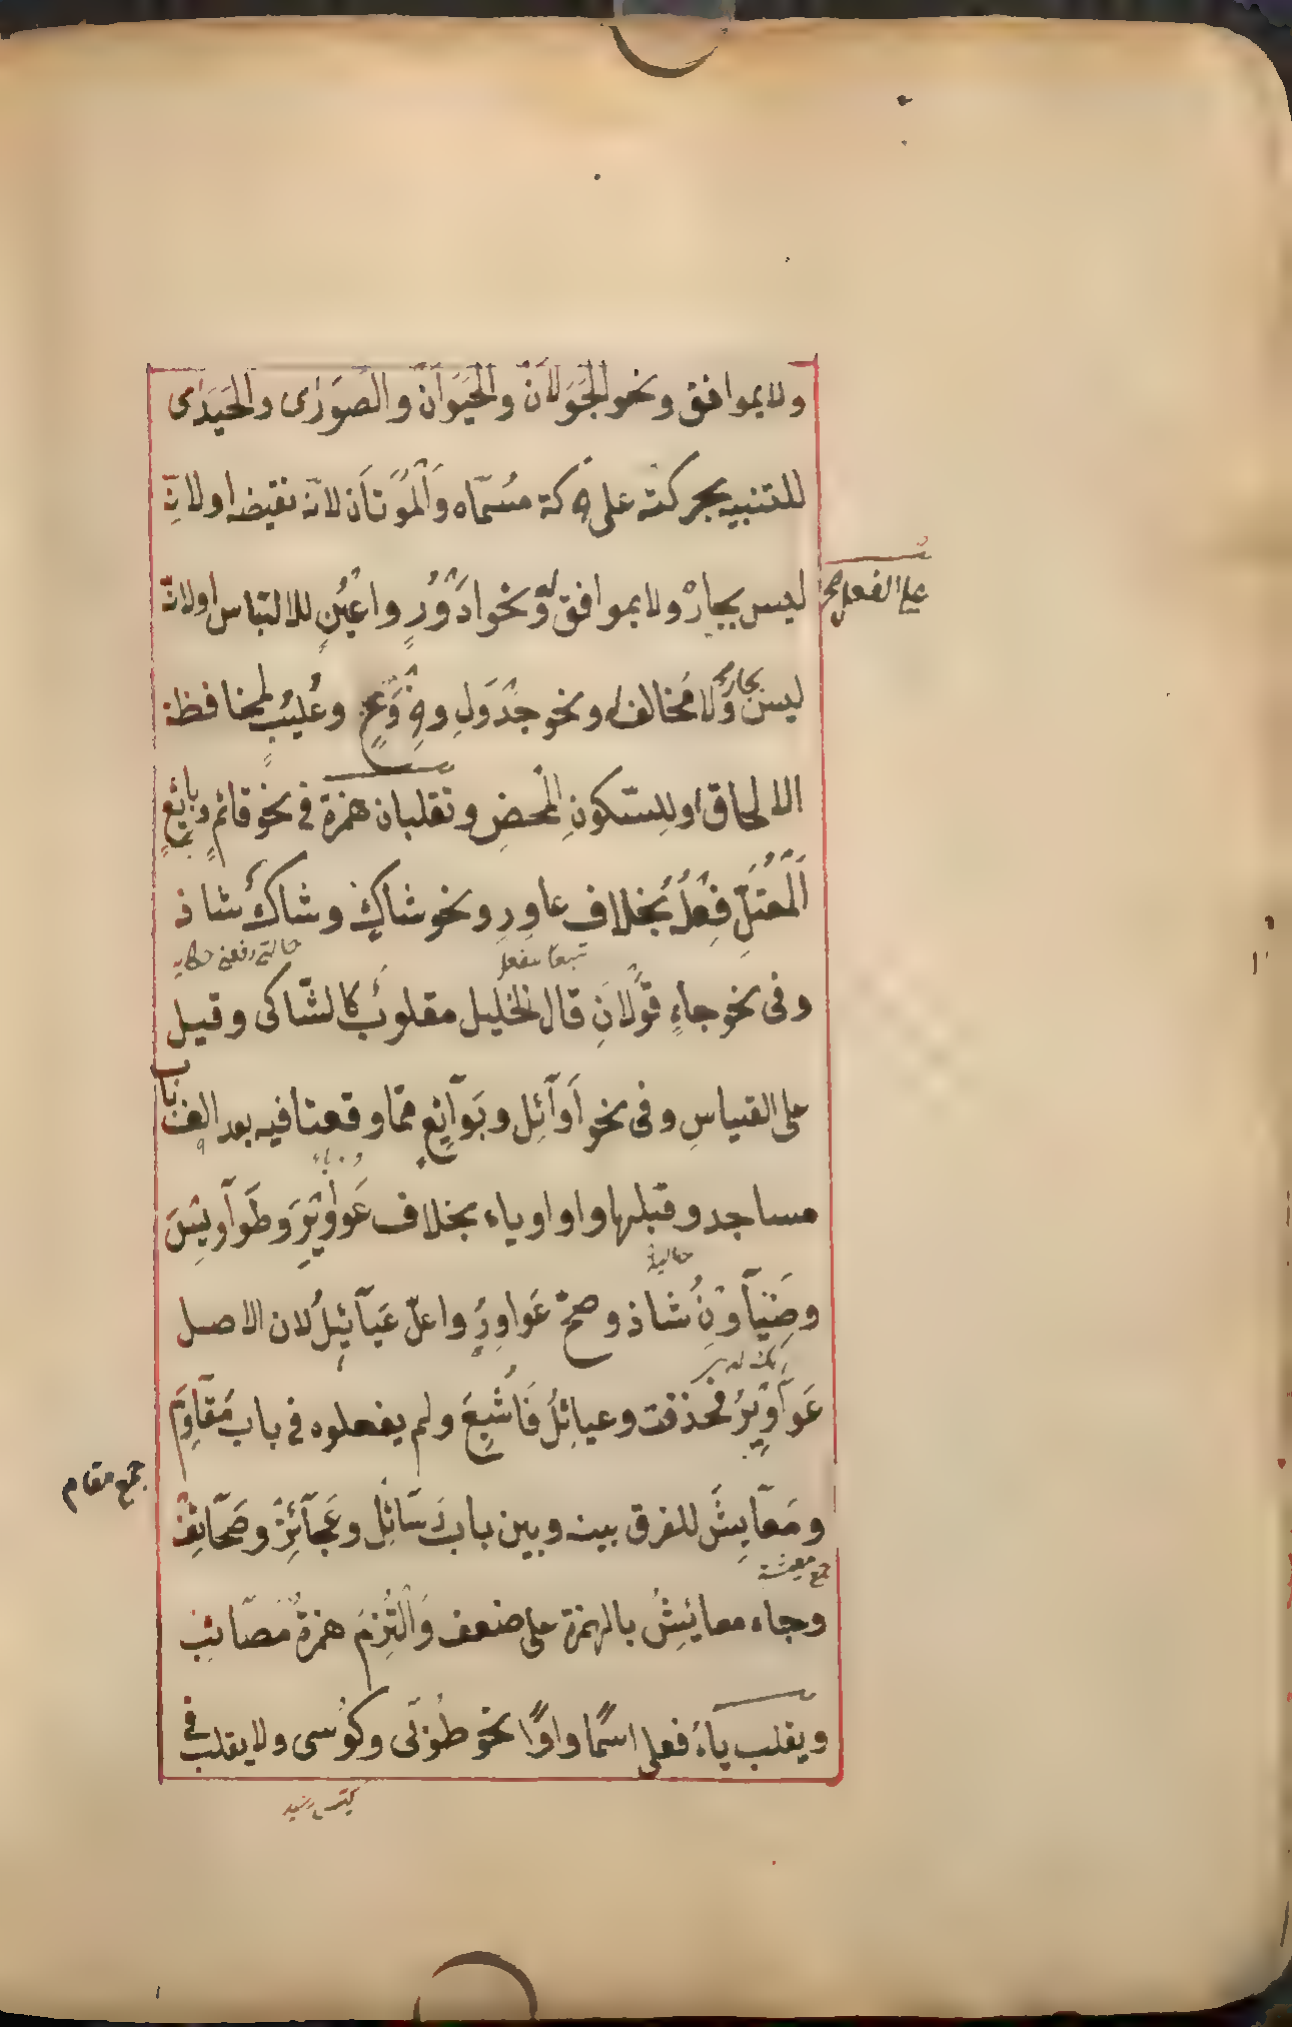 ولا بموافق ونحو الجَوَلَان والحَيَوَان والصَوَرٰى والحَيَدٰى
للتنبيه بحركته على حركة مسمّاه وَالْمَوَتَان لانّه نقيضه او لانّه
ليس بجارٍ ولا بموافق له ونحو ادْوُرٍ واعْيُنٍ للالتباس او لانّه
على الفعل صح
ليس بجارٍ ولا مخالف ونحو جَدْوَلٍ وخِرْوَعٍ وعُلْيَبٍ لمحافظة
الالحاق او للسّكونِ المحضِ وتقلبان همزة في نحو قائمٍ وبائعٍ
اَلْمُعتَلِّ فِعْلُهُ بخلاف عاوِرٍ ونحو شاكٍ وشاكٌ شاذ
وفى نحو جاءٍ قَوْلَانِ قال الخليل مقلوبٌ كالشّاكى وقيل
على القياسِ وفى نحو اَوَآئِل وبَوَآئِع ممّا وقعتا فيه بعد الف باب
مساجد وقبلها واو او ياء بخلاف عَوَاوِيْرَ وطَوَآوِيسَ
وضَيَآوِنُ شاذ وصحّ عَوَاوِرُ واعلّ عَيَآئِلُ لان الاصل
عَوَآوِيْرُ فحذفت وعيائِلُ فَاُشْبِعَ ولم يفعلوه فى باب مَقَاوِمَ
جمع مقام
ومَعَايِشَ للفرق بينه وبين باب رَسَآئِل وعَجَآئِزَ وصَحَآئِفَ
جمع معيشة
وجاء معائِشُ بالهمزة على ضعف وَالْتُزِمَ همزةُ مَصَآئِب
ويقلب ياءُ فعلى اسمًا واوًا نحو طُوْبٰى وكُوْسى ولا يقلب فى